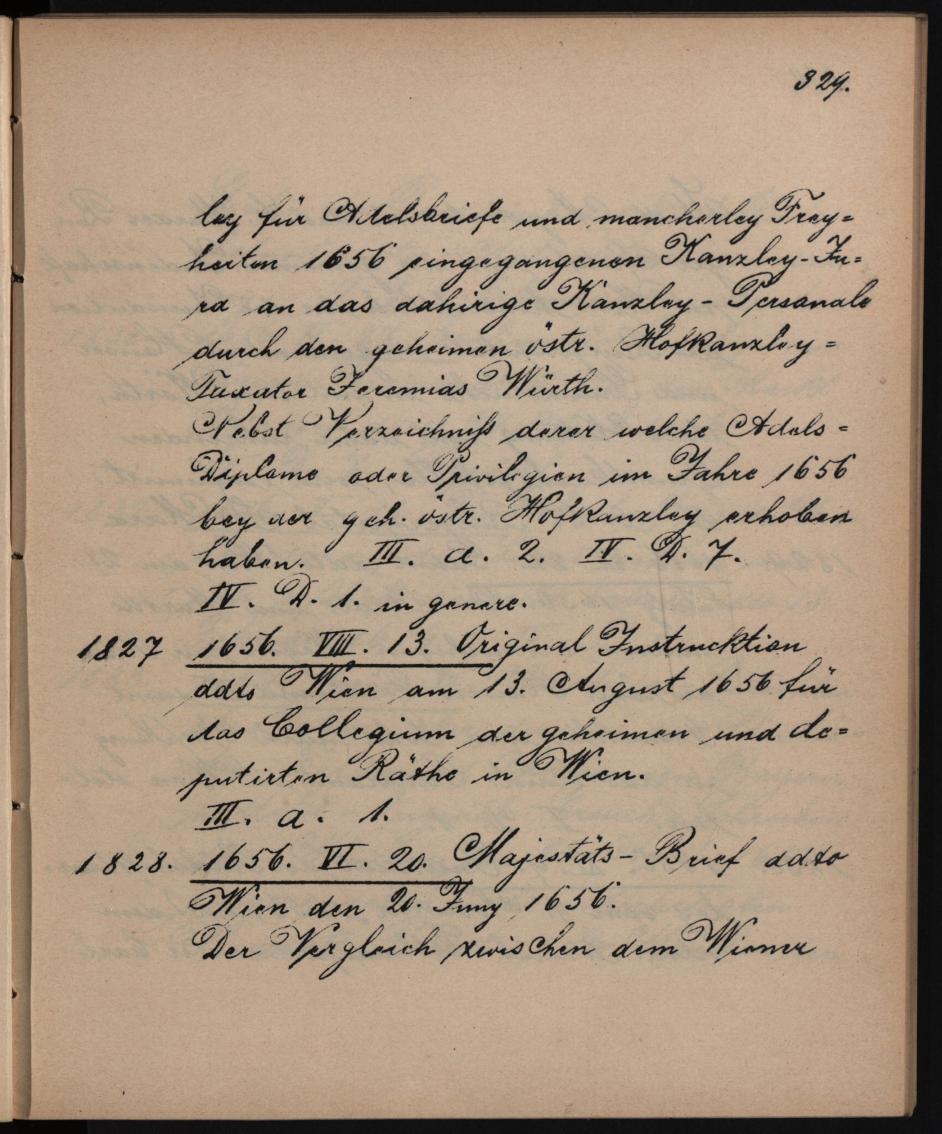 329.
ley für Adelsbriefe und mancherley Frey=
heiten 1656 eingegangenen Kanzley-Ju=
ra an das dahirige Kanzley-Personale
durch den geheimen östr. Hofkanzley=
Taxator Jeremias Würth.
Nebst Verzeichniß derer welche Adels=
Diplome oder Privilegien im Jahre 1656
bey der geh. östr. Hofkanzley erhoben
haben. III. a. 2. IV. D. 7.
IV. D. 1. in genere.
1827 1656. VIII. 13. Original Instrucktion
ddto Wien am 13. August 1656 für
das Collegium der geheimen und de=
putirten Räthe in Wien.
III. a. 1.
1828. 1656. VI. 20. Majestäts-Brief ddto
Wien den 20. Juny 1656.
Der Vergleich zwischen dem Wiener